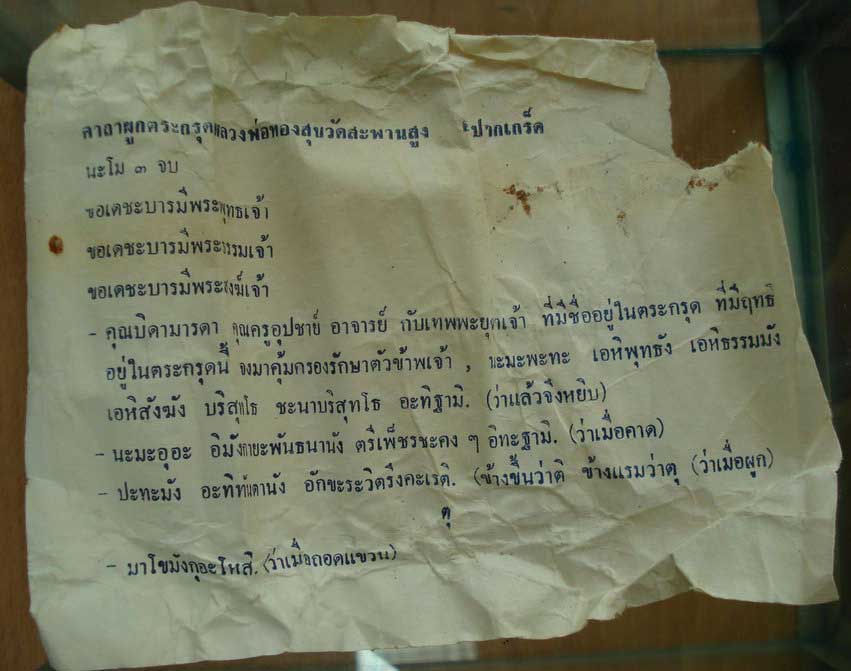 คาถาผูกตระกรุดหลวงพ่อทองสุขวัดสะพานสูง ปากเกร็ด
นะโม ๓ จบ
ขอเดชะบารมีพระพุทธเจ้า
ขอเดชะบารมีพระธรรมเจ้า
ขอเดชะบารมีพระสงฆ์เจ้า
- คุณบิดามารดา คุณครูอุปชาย์ อาจารย์ กับเทพพะยุดาเจ้า ที่มีชื่ออยู่ในตระกรุด ที่มีฤทธิ
อยู่ในตระกรุดนี้ จงมาคุ้มกรองรักษาตัวข้าพเจ้า , นะมะพะทะ เอหิพุทธัง เอหิธรรมมัง
เอหิสังฆัง บริสุทโธ ชะนาบริสุทโธ อะทิฐามิ. (ว่าแล้วจึงหยิบ)
- นะมะอุอะ อิมังกายะพันธนานัง ตรีเพ็ชรชะคง ๆ อิทะฐามิ. (ว่าเมื่อคาด)
- ปะทะมัง อะทิทันตานัง อักขะระวิตรึงคะเรติ. (ข้างขึ้นว่าติ ข้างแรมว่าตุ (ว่าเมื่อผูก)
ตุ
- มาโขมังกุอะโหสิ. (ว่าเมื่อถอดแขวน)